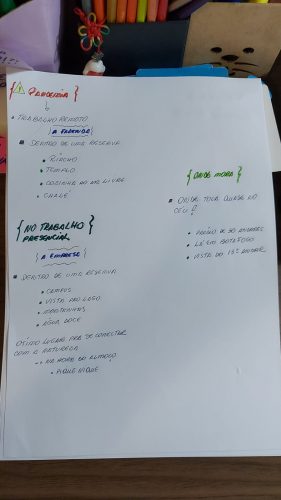 {⚠ PARCERIA }
• TRABALHO REMOTO
A FAZENDA
■ DENTRO DE UMA RESERVA
• RIACHO
• TEMPLO
• COZINHA AO AR LIVRE
• CHALÉ
{ NO TRABALHO PRESENCIAL }
A EMPRESA
■ DENTRO DE UMA RESERVA
• CAMPUS
• VISTA PRO LAGO
• MONTANHAS
• ÁGUA DOCE
ÓTIMO LUGAR PRA SE CONECTAR
COM A NATUREZA
→ NA HORA DO ALMOÇO
• PIQUE NIQUE
{ ONDE MORA }
■ ONDE TOCA QUASE NO
CÉU?
• PRÉDIO DE 50 ANDARES
• LÁ EM BOTAFOGO
• VISTA DO 15º ANDAR